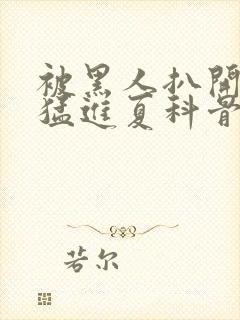 被黑人扒開
猛進夏科骨
若尔